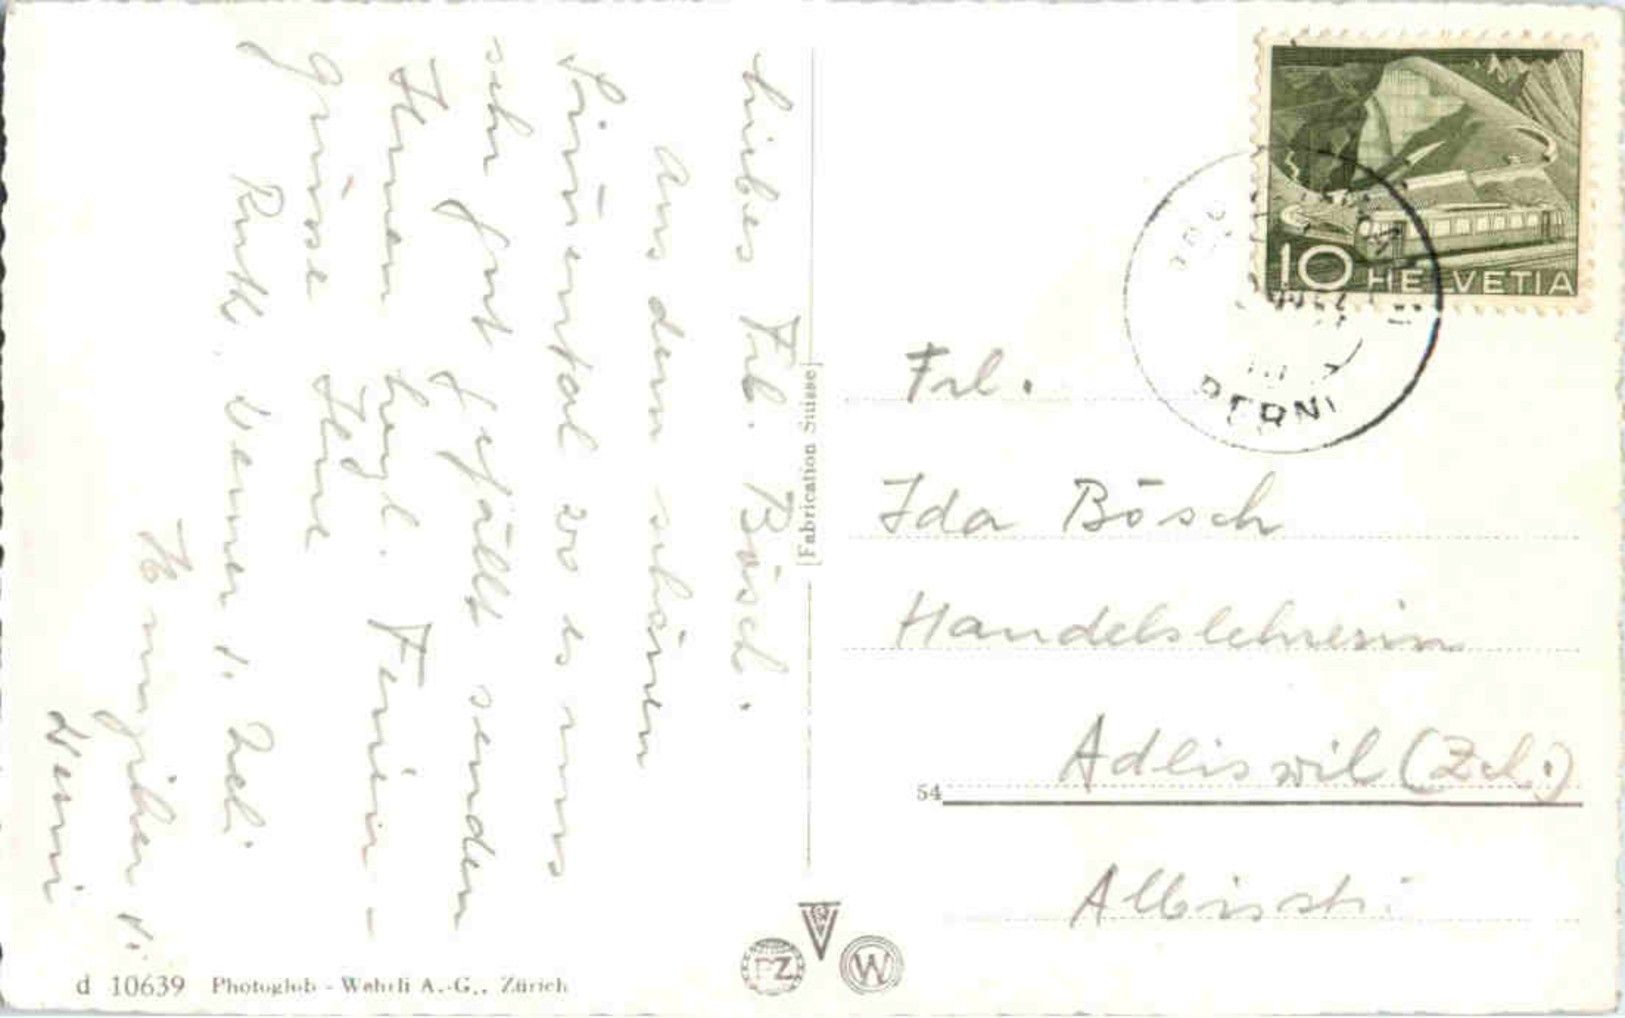 Liebes Frl. Bösch.
Aus dem schönen
Simmental wo es uns
sehr gut gefällt senden
Ihnen herzl. Ferien-
grüsse Ihre
Ruth, Werner
Werni
[Fabrication Suisse]
10 HELVETIA
Frl.
Ida Bösch
Handelslehrerin
Adliswil (Zch.)
54
Albisstr.
PZ
W
d 10639 Photoglob - Wehrli A.-G., Zürich